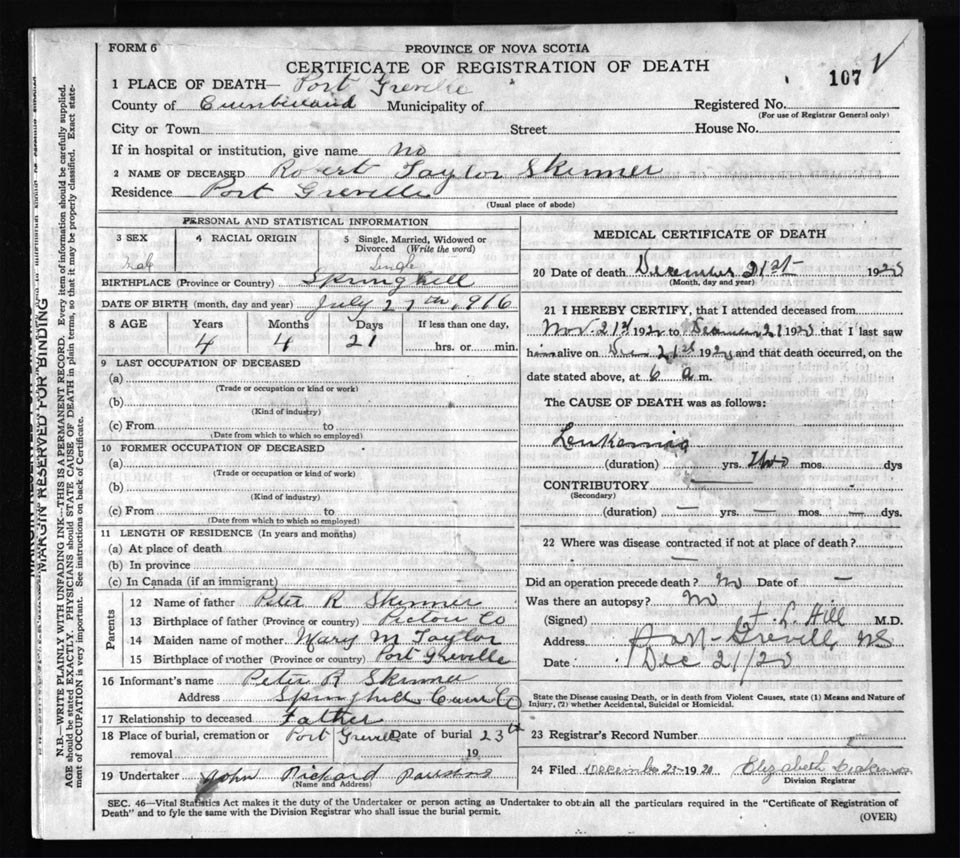 FORM 6
PROVINCE OF NOVA SCOTIA
CERTIFICATE OF REGISTRATION OF DEATH
107
1 PLACE OF DEATH— Port Greville
County of Cumberland Municipality of Registered No.
(For use of Registrar General only)
City or Town Street House No.
If in hospital or institution, give name no
2 NAME OF DECEASED Robert Taylor Skinner
Residence Port Greville
(Usual place of abode)
PERSONAL AND STATISTICAL INFORMATION
3 SEX 4 RACIAL ORIGIN 5 Single, Married, Widowed or Divorced (Write the word)
Male Single
BIRTHPLACE (Province or Country) Springhill
DATE OF BIRTH (month, day and year) July 27th, 916
8 AGE Years Months Days If less than one day,
4 4 21 hrs. or min.
9 LAST OCCUPATION OF DECEASED
(a)
(Trade or occupation or kind or work)
(b)
(Kind of industry)
(c) From to
(Date from which to which so employed)
10 FORMER OCCUPATION OF DECEASED
(a)
(Trade or occupation or kind of work)
(b)
(Kind of industry)
(c) From to
(Date from which to which so employed)
11 LENGTH OF RESIDENCE (In years and months)
(a) At place of death
(b) In province
(c) In Canada (if an immigrant)
Parents
12 Name of father Peter R Skinner
13 Birthplace of father (Province or country) Pictou Co
14 Maiden name of mother Mary M Taylor
15 Birthplace of mother (Province or country) Port Greville
16 Informant's name Peter R Skinner
Address Springhill Co
17 Relationship to deceased Father
18 Place of burial, cremation or Port Greville Date of burial 23rd
removal 19
19 Undertaker John Richard
(Name and Address)
MEDICAL CERTIFICATE OF DEATH
20 Date of death December 21st 1920
(Month, day and year)
21 I HEREBY CERTIFY, that I attended deceased from
Nov. 21st 1920 to December 21 1920 that I last saw
him alive on Dec 21st 1920 and that death occurred, on the
date stated above, at 6 a.m.
The CAUSE OF DEATH was as follows:
Leukaemia
(duration) yrs. Two mos. dys
CONTRIBUTORY —
(Secondary)
(duration) — yrs. — mos. — dys.
22 Where was disease contracted if not at place of death?
—
Did an operation precede death? No Date of —
Was there an autopsy? No
(Signed) F. L. Hill M.D.
Address Port Greville NS
Date Dec 21/20
State the Disease causing Death, or in death from Violent Causes, state (1) Means and Nature of
Injury, (2) whether Accidental, Suicidal or Homicidal.
23 Registrar's Record Number
24 Filed December 1920 Elizabeth
Division Registrar
SEC. 46—Vital Statistics Act makes it the duty of the Undertaker or person acting as Undertaker to obtain all the particulars required in the "Certificate of Registration of
Death" and to fyle the same with the Division Registrar who shall issue the burial permit.
(OVER)
MARGIN RESERVED FOR BINDING
N.B.—WRITE PLAINLY WITH UNFADING INK—THIS IS A PERMANENT RECORD. Every item of information should be carefully supplied.
AGE should be stated EXACTLY. PHYSICIANS should STATE CAUSE OF DEATH in plain terms, so that it may be properly classified. Exact state-
ment of OCCUPATION is very important. See instructions on back of Certificate.